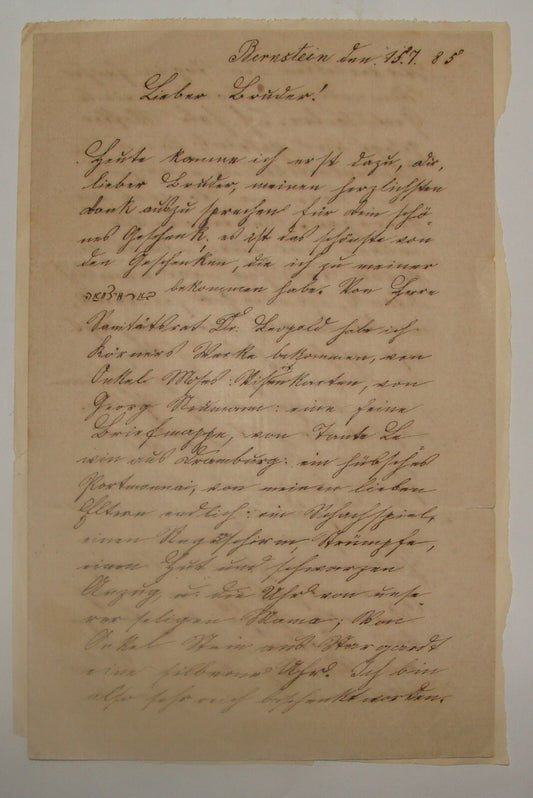 Bernstein den 15.7. 85
Lieber Bruder!
Heute komme ich erst dazu, dir,
lieber Bruder, meinen herzlichsten
Dank auszusprechen für dein schö-
nes Geschenk, es ist das schönste von
den Geschenken, die ich zu meiner
bekommen habe. Von Herrn
Sanitätsrat Dr. Leopold habe ich
Körners Werke bekommen, von
Onkel Moses: Visitkarten, von
Georg Neumann: eine feine
Briefmappe, von Tante Le-
win aus Dramburg: ein hübsches
Portmonnai, von meinen lieben
Eltern endlich: ein Schachspiel,
einen Regenschirm, Strümpfe,
einen Hut und schwarzen
Anzug u. die Uhr von unse-
rer seligen Mama; Von
Onkel Stein aus Stargardt
eine silberne Uhr. Ich bin
also sehr reich beschenkt worden.